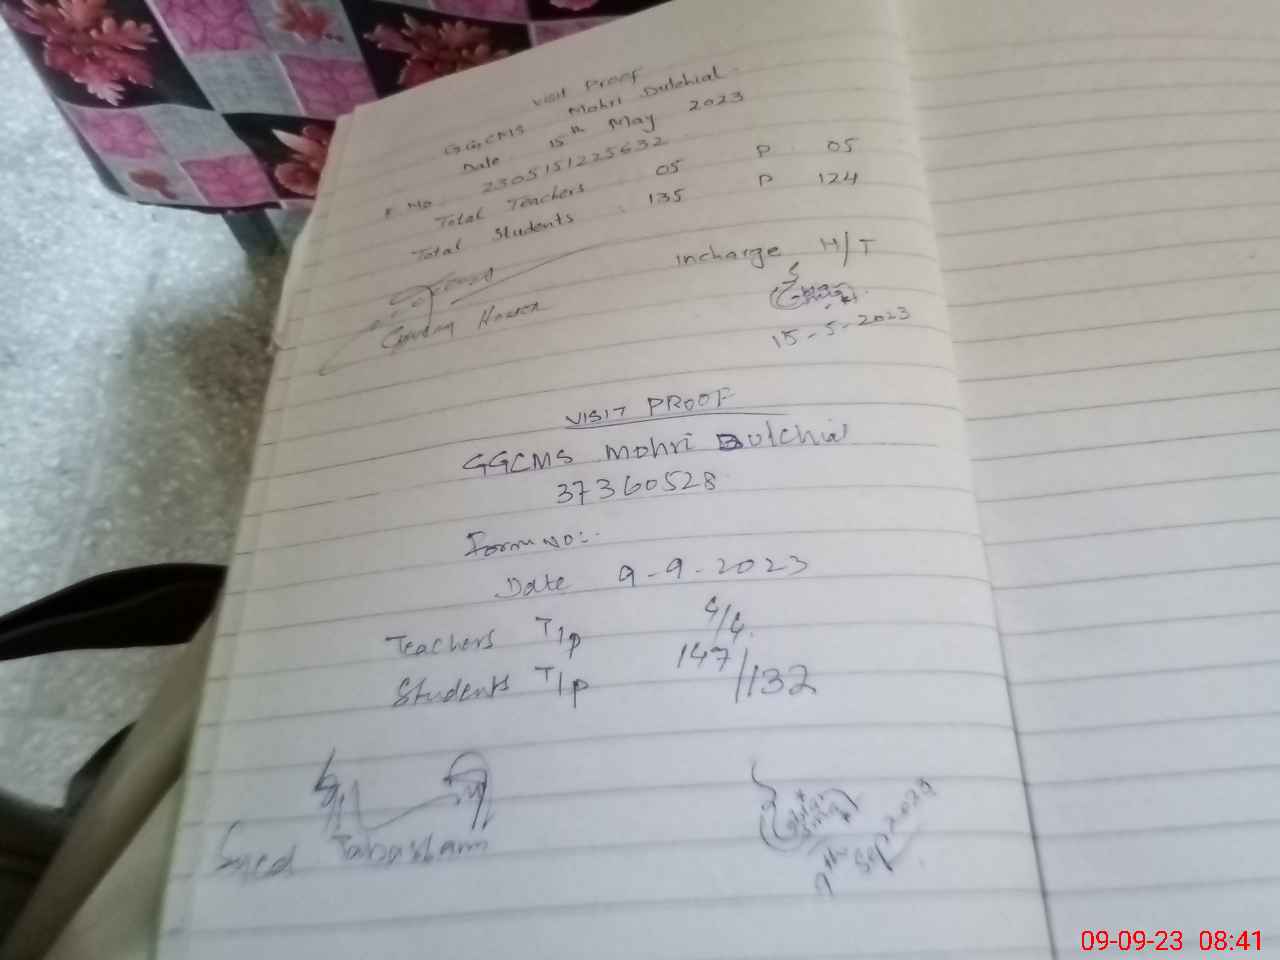 Visit Proof
GGCMS Mohri Dulchial
Date 15th May 2023
F. No 2305151225632
Total Teachers 05 P 05
Total Students 135 P 124
Incharge H/T
15-5-2023
VISIT PROOF
GGCMS Mohri Dulchial
37360528
Form NO:-
Date 9-9-2023
Teachers T/P 4/4
Students T/P 147/132
Syed Tabassam
9th Sep 2023
09-09-23 08:41